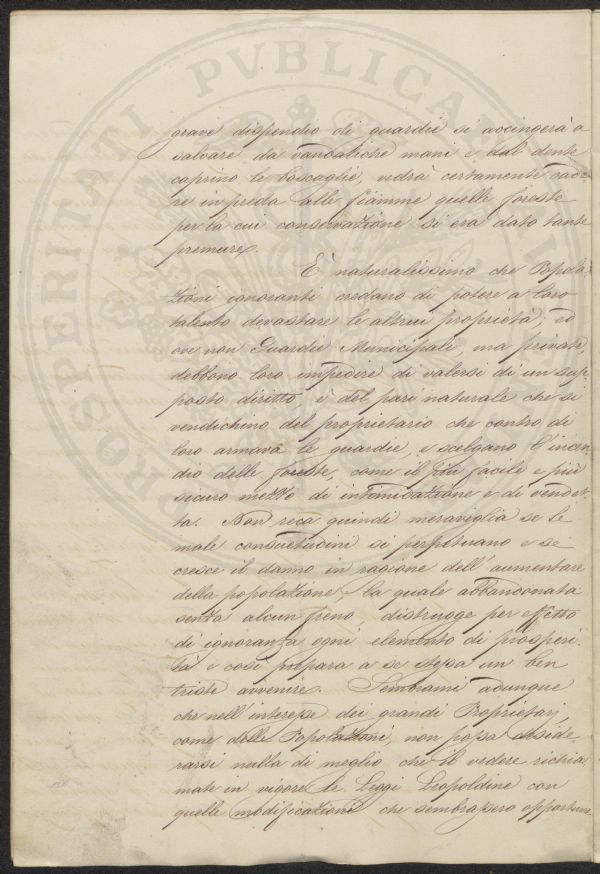 PROSPERITATI PVBLICAE
grave dispendio di guardie si accingerà a
salvare da vandaliche mani e dal dente
caprino le boscaglie, vedrà certamente cade-
re in preda alle fiamme quelle foreste
per la cui conservazione si era dato tante
premure.
È naturalissimo che Popola-
zioni ignoranti credano di potere a loro
talento devastare le altrui proprietà, ed
ove non Guardie Municipali, ma private,
debbono loro impedire di valersi di un sup-
posto diritto, è del pari naturale che si
vendichino del proprietario che contro di
loro armava le guardie e scelgano l'incen
dio delle foreste, come il più facile e più
sicuro mezzo di intimidazione e di vendet-
ta. Non reca quindi meraviglia se le
male consuetudini si perpetuano e se
cresce il danno in ragione dell'aumentare
della popolazione, la quale abbandonata
senza alcun freno, distrugge per effetto
di ignoranza ogni elemento di prosperi-
tà e così prepara a se stessa un ben
triste avvenire. Sembrami adunque
che nell'interesse dei grandi Proprietarj,
come delle Popolazioni, non possa deside-
rarsi nulla di meglio che il vedere richia-
mate in vigore le Leggi Leopoldine con
quelle modificazioni che sembrassero opportune